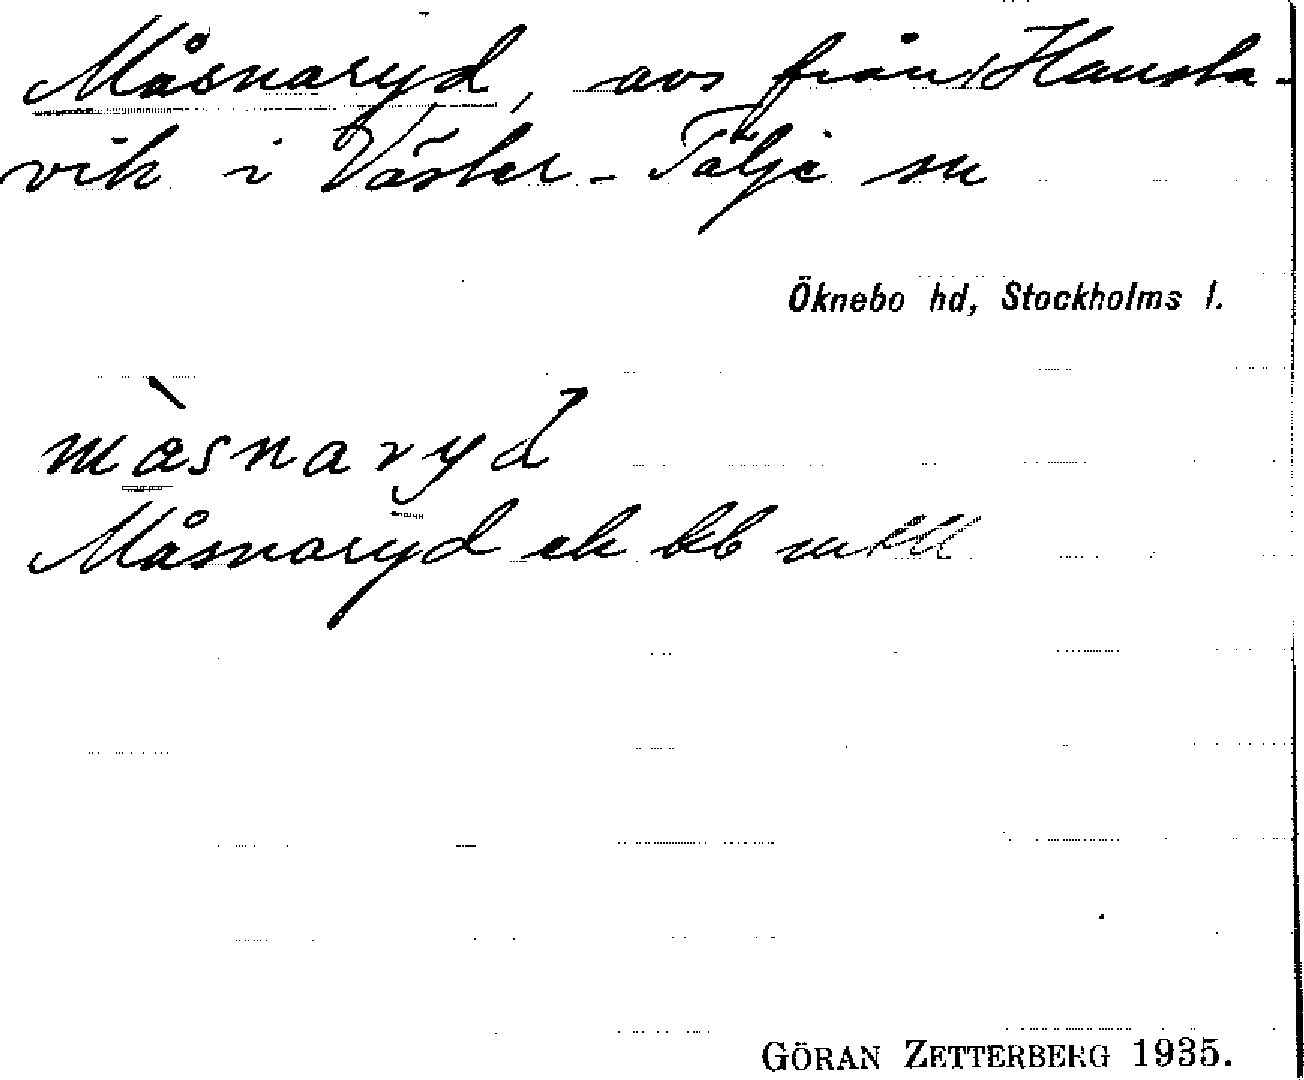 Måsnaryd, avs från Hansta-
vik i Väster-Tälje sn
Öknebo hd, Stockholms l.
måsnaryd
Måsnaryd ek bl
GÖRAN ZETTERBERG 1935.